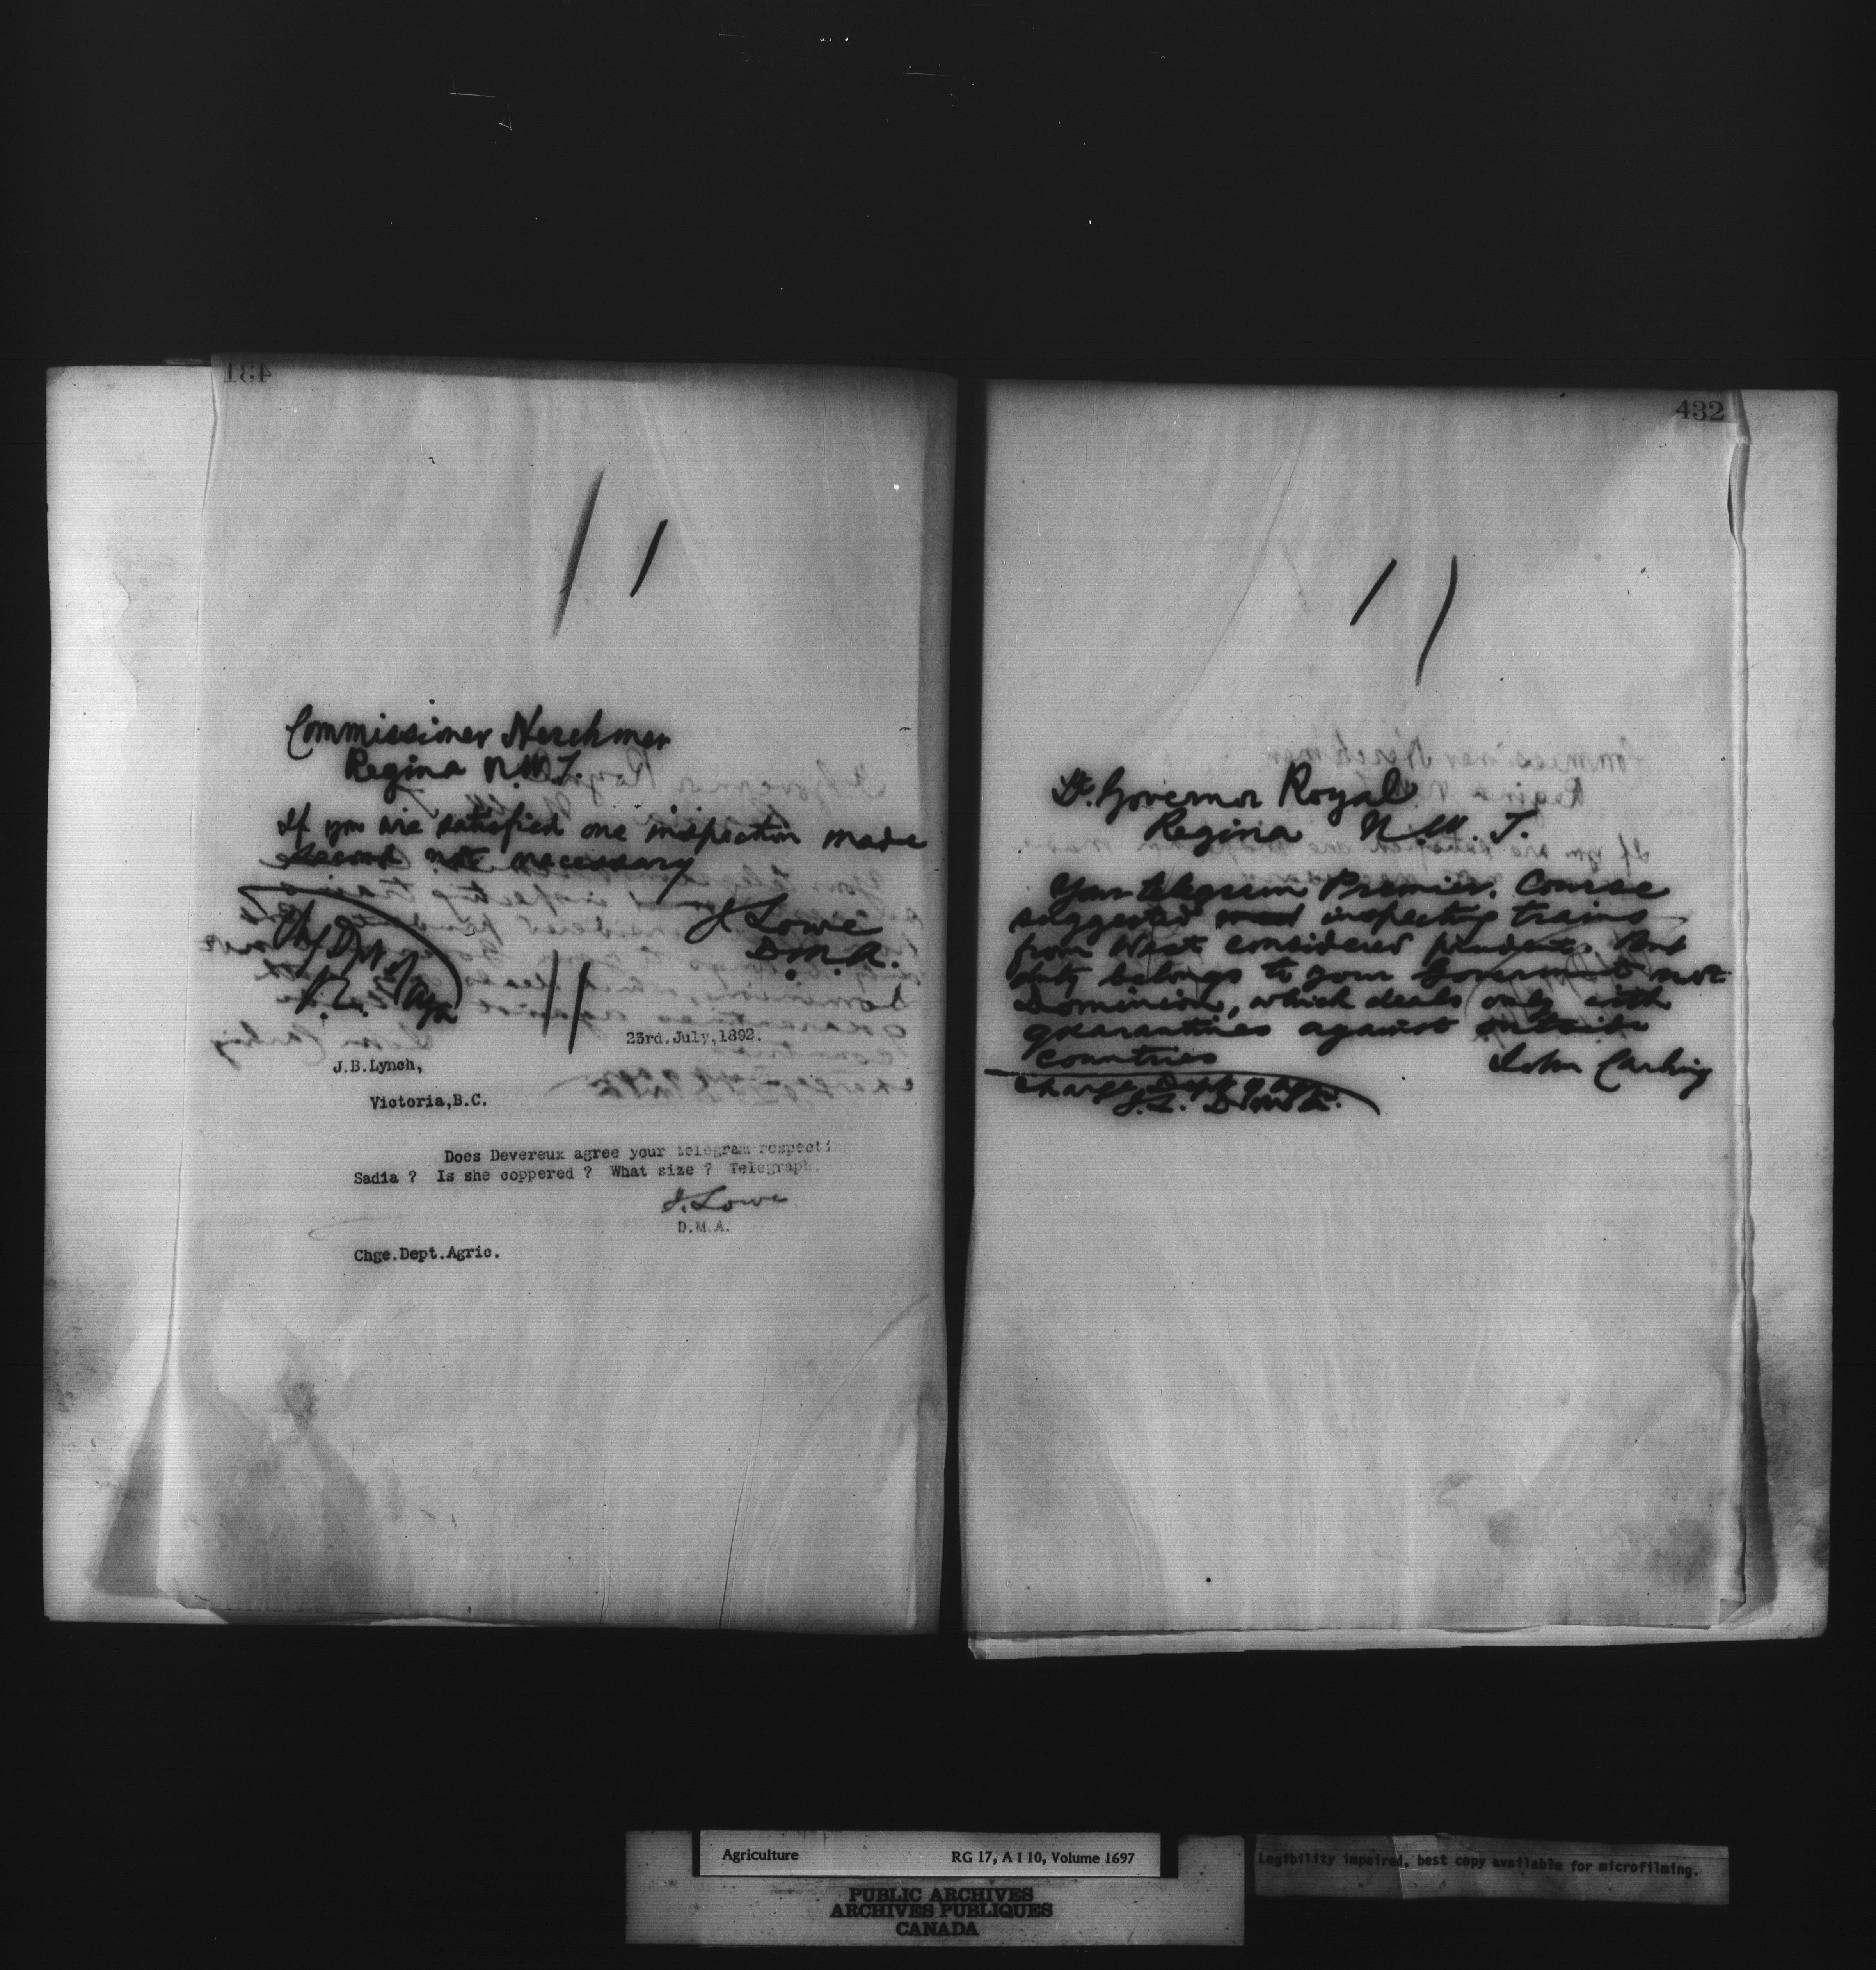 431
Commissioner Herchmer
Regina N.W.T.
If you are satisfied one inspection made
second not necessary
J Lowe
D.M.A.
Chg Dept of Agr
23rd.July,1892.
J.B.Lynch,
Victoria,B.C.
Does Devereux agree your telegram respecting
Sadia ? Is she coppered ? What size ? Telegraph.
J. Lowe
D.M.A.
Chge.Dept.Agric.
432
Lt. Governor Royal
Regina N.W.T.
Your telegram Premier. Course
suggested inspecting trains
from West considered prudent. But
duty belongs to your Government not
Dominion, which deals only with
quarantines against outside
countries
John Carling
Charge Dept of Agr.
J.L. D.M.A.
Agriculture RG 17, A I 10, Volume 1697
PUBLIC ARCHIVES
ARCHIVES PUBLIQUES
CANADA
Legibility impaired, best copy available for microfilming.